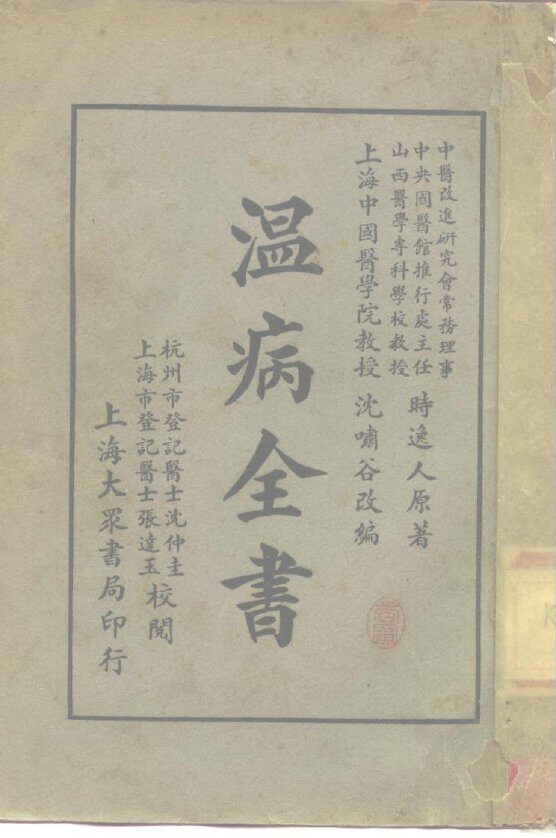 中醫改進研究會常務理事
中央國醫館推行處主任
山西醫學專科學校教授
時逸人原著
上海中國醫學院教授 沈嘯谷改編
溫病全書
杭州市登記醫士沈仲圭
上海市登記醫士張達玉
校閱
上海大眾書局印行